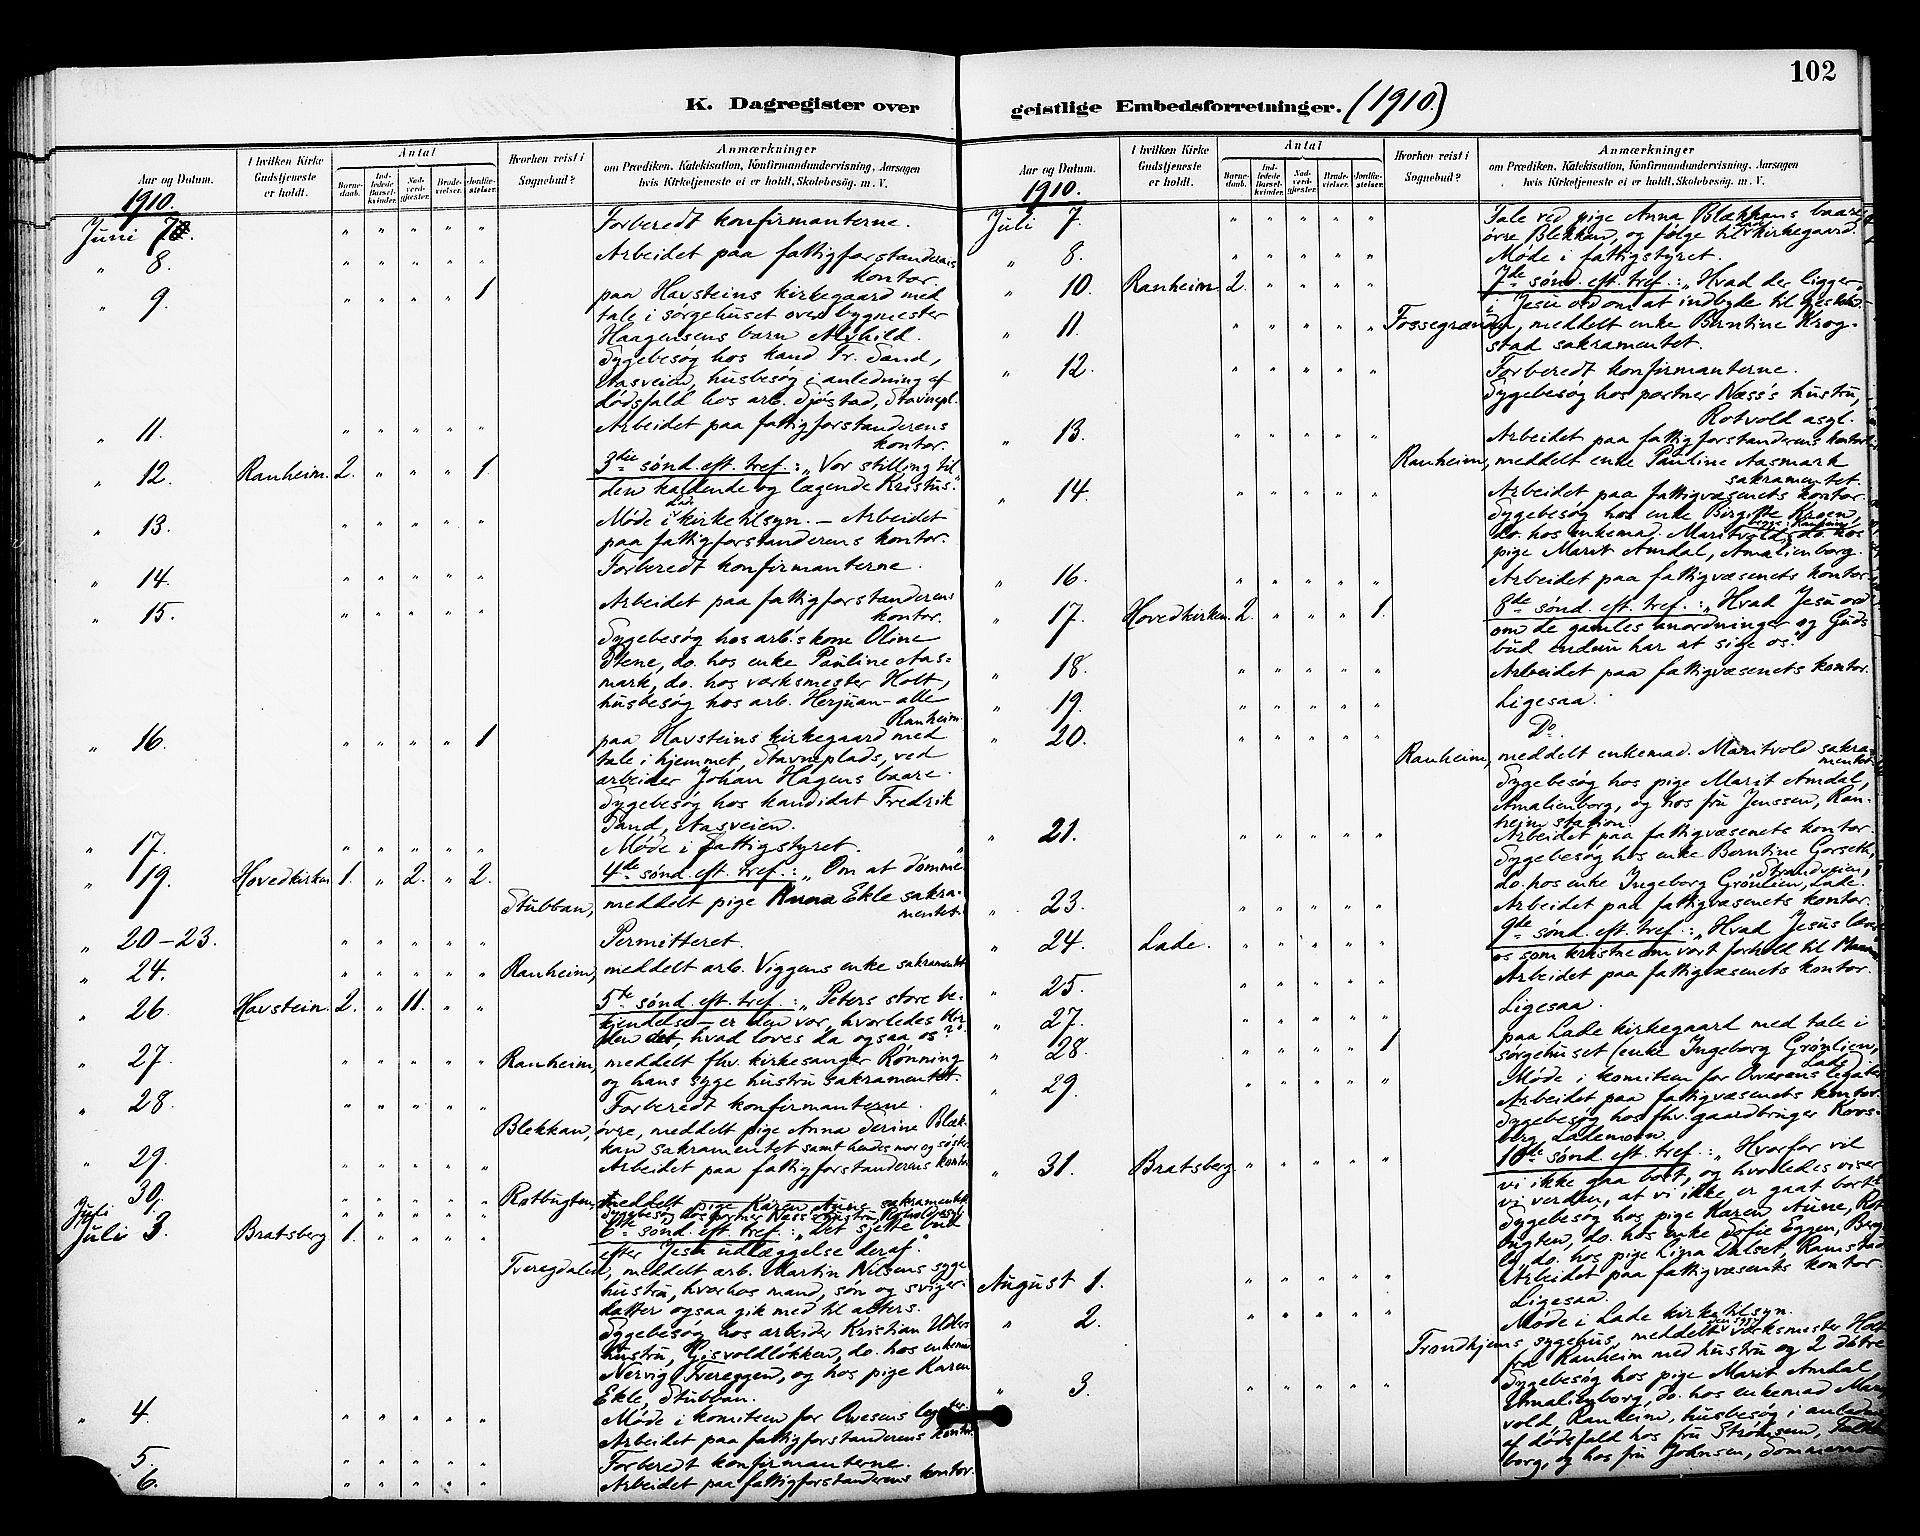 102
K. Dagregister over geistlige Embedsforretninger. (1910.)
Aar og Datum.
I hvilken Kirke Gudstjeneste er holdt.
Antal
Barnedaab.
Indledede Barselkvinder.
Nadverdgjester.
Brudevielser.
Jordfæstelser.
Hvorhen reist i Sognebud?
Anmærkninger
om Prædiken, Katekisation, Konfirmandundervisning, Aarsagen
hvis Kirketjeneste ei er holdt, Skolebesøg, m. V.
1910.
Juni 7. " " " " " Forberedt konfirmanterne.
" 8. " " " " " Arbeidet paa fattigforstanderens
kontor.
" 9. " " " " 1 paa Havsteins kirkegaard med
tale i sørgehuset over bygmester
Haagensens barn Alvhild.
Sygebesøg hos kand. Fr. Sand,
Aasveien, husbesøg i anledning af
dødsfald hos arb. Sjøstad, Stavnepl.
" 11. " " " " " Arbeidet paa fattigforstanderens
kontor.
" 12. Ranheim. 2. " " " 1 3die sønd. eft. tref.: "Vor stilling til
den kaldende og lægende Kristus."
" 13. " " " " " Møde i kirketilsyn. – Arbeidet
paa fattigforstanderens kontor.
" 14. " " " " " Forberedt konfirmanterne.
" 15. " " " " " Arbeidet paa fattigforstanderens
kontor.
Sygebesøg hos arb.'s kone Oline
Stene, do. hos enke Pauline Aas=
mark, do. hos værksmester Holt,
husbesøg hos arb. Herjuan – alle
Ranheim.
" 16. " " " " 1 paa Havsteins kirkegaard med
tale i hjemmet, Stavneplads, ved
arbeider Johan Hagens baare.
Sygebesøg hos kandidat Fredrik
Sand, Aasveien.
" 17. " " " " " Møde i fattigstyret.
" 19. Hovedkirken 1. " 2. " 2. 4de sønd. eft. tref.: "Om at dømme."
Stubban, meddelt pige Karen Ekle sakra-
mentet.
" 20–23. " " " " " Permitteret.
" 24. " " " " " Ranheim, meddelt arb. Viggens enke sakramentet
" 26. Havstein. 2. " 11. " " 5te sønd. eft. tref.: "Peters store be-
kjendelse – er den vor, hvorledes blir
den det, hvad loves da ogsaa os?"
" 27. " " " " " Ranheim, meddelt fhv. kirkesanger Rønning
og hans syge hustru sakramentet.
" 28. " " " " " Forberedt konfirmanterne.
Blekkan, øvre, meddelt pige Anna Serine Blæk-
kan sakramentet samt hendes mor og søster
" 29. " " " " " Arbeidet paa fattigforstanderens kontor
" 30. " " " " " Rotbugten, meddelt pige Karen Aune sakramentet
Juli " " " " " Sygebesøg hos portner Næss's hustru, Rotvold asyl
Juli 3. Bratsberg 1. " " " " 6te sønd. eft. tref.: "Det sjette bud
efter Jesu udlæggelse deraf."
Tveregdalen, meddelt arb. Martin Nilsens syge
hustru, hvorhos mand, søn og sviger-
datter ogsaa gik med til alters.
Sygebesøg hos arbeider Kristian
hustru, Gisvoldløkken, do. hos enkemad
Nervig, Tvereggen, og hos pige Karen
Ekle, Stubban.
" 4. " " " " " Møde i komiteen for Ovesens legater.
Arbeidet paa fattigforstanderens kontor.
5. " " " " " Forberedt konfirmanterne.
6. " " " " " Arbeidet paa fattigforstanderens kontor.
Aar og Datum.
I hvilken Kirke Gudstjeneste er holdt.
Antal
Barnedaab.
Indledede Barselkvinder.
Nadverdgjester.
Brudevielser.
Jordfæstelser.
Hvorhen reist i Sognebud?
Anmærkninger
om Prædiken, Katekisation, Konfirmandundervisning, Aarsagen
hvis Kirketjeneste ei er holdt, Skolebesøg, m. V.
1910.
Juli 7. " " " " " Tale ved pige Anna Blækkans baare,
øvre Blekkan, og følge til kirkegaard.
" 8. " " " " " Møde i fattigstyret.
" 10. Ranheim 2. " " " " 7de sønd. eft. tref.: "Hvad der ligger
i Jesu ord om at indbyde til
" 11. " " " " " Fossegrænden, meddelt enke Berntine Krog-
stad sakramentet.
" 12. " " " " " Forberedt konfirmanterne.
Sygebesøg hos portner Næss's hustru,
Rotvold asyl.
" 13. " " " " " Arbeidet paa fattigforstanderens kontor.
Ranheim, meddelt enke Pauline Aasmark
sakramentet.
" 14. " " " " " Arbeidet paa fattigvæsenets kontor.
Sygebesøg hos enke Birgitte Kroen,
do. hos enkemad. Maritvold, begge Ranheim, do. hos
pige Marit Amdal, Amalienborg.
" 16. " " " " " Arbeidet paa fattigvæsenets kontor.
" 17. Hovedkirken. 2. " " " 1. 8de sønd. eft. tref.: "Hvad Jesu ord
om de gamles anordninger og Guds
bud endnu har at sige os."
" 18. " " " " " Arbeidet paa fattigvæsenets kontor.
" 19. " " " " " Ligesaa.
" 20. " " " " " Do.
Ranheim, meddelt enkemad. Maritvold sakra-
mentet.
Sygebesøg hos pige Marit Amdal,
Amalienborg, og hos fru Jenssen, Ran-
heim station.
" 21. " " " " " Arbeidet paa fattigvæsenets kontor.
Sygebesøg hos enke Berntine Gorseth,
Strandveien,
do. hos enke Ingeborg Grønlien, Lade.
" 23. " " " " " Arbeidet paa fattigvæsenets kontor.
" 24. Lade. " " " " " 9de sønd. eft. tref.: "Hvad Jesus
os som kristne om vort forhold til
" 25. " " " " " Arbeidet paa fattigvæsenets kontor.
" 27. " " " " " Ligesaa.
" 28. " " " " 1 paa Lade kirkegaard med tale i
sørgehuset (enke Ingeborg Grønlien,
Lade)
" 29. " " " " " Møde i komiteen for Ovesens legater
Arbeidet paa fattigvæsenets kontor.
Sygebesøg hos fhv. gaardbruger Kors-
berg, Lademoen.
" 31. Bratsberg " " " " " 10de sønd. eft. tref.: "Hvorfor vil
vi ikke gaa bort, og hvorledes viser
vi verden, at vi ikke er gaat bort."
Sygebesøg hos pige Karen Aune, Rot-
bugten, do. hos enke Sofie Eggen, Berg
do. hos pige Lina Dalset, Ramstad
August 1. " " " " " Arbeidet paa fattigvæsenets kontor.
Ligesaa.
" 2. " " " " " Møde i Lade kirketilsyn.
Trondhjems sygehus, meddelt den syge værksmester Holt
fra Ranheim med hustru og 2 døtre
" 3. " " " " " Sygebesøg hos pige Marit Amdal
Amalienborg, do. hos enkemad
vold, Ranheim, husbesøg i anledn.
af dødsfald hos fru Strømsem,
borg, og hos fru Johnsen,